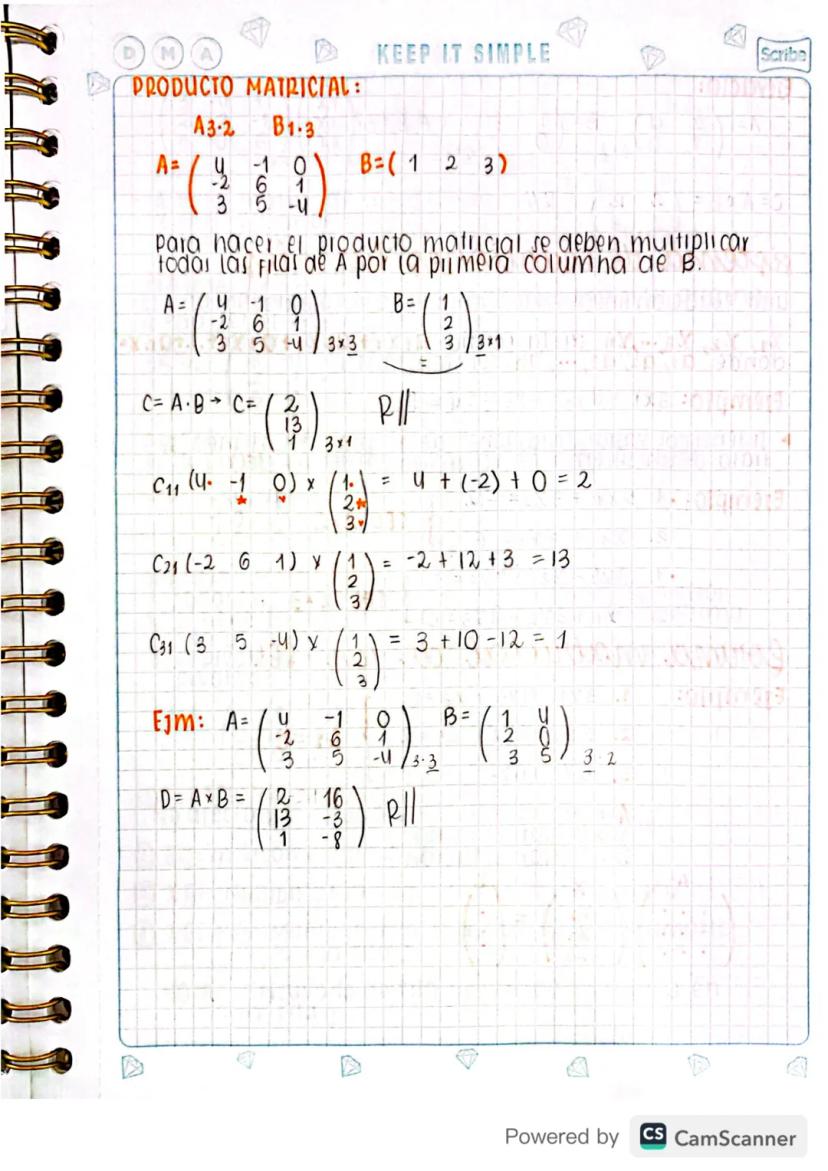 D M A
KEEP IT SIMPLE
Scribe
PRODUCTO MATRICIAL:
A3·2 B1·3
A= ( 4 -1 0 ) B=( 1 2 3 )
-2 6 1
3 5 -4
Para hacer el producto matricial se deben multiplicar
todas las filas de A por la primera columna de B.
A= ( 4 -1 0 ) B= ( 1 )
-2 6 1 2
3 5 -4 3×3 3 3×1
=
C= A·B → C= ( 2 ) R//
13
1 3×1
C11 (4· -1 0) × ( 1· ) = 4 + (-2) + 0 = 2
2
3
C21 (-2 6 1) × ( 1 ) = -2 + 12 + 3 = 13
2
3
C31 (3 5 -4) × ( 1 ) = 3 + 10 - 12 = 1
2
3
Ejm: A= ( 4 -1 0 ) B= ( 1 4 )
-2 6 1 2 0
3 5 -4 3·3 3 5 3·2
D= A×B = ( 2 16 ) R//
13 -3
1 -8
Powered by CS CamScanner